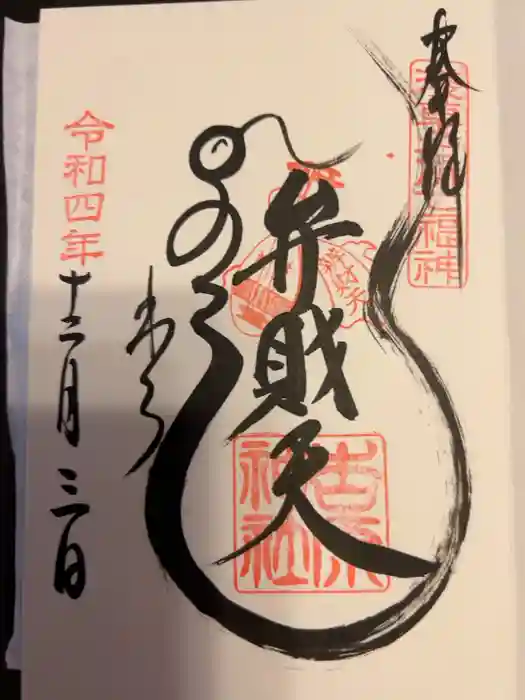 奉拝
福神
弁財天
吉原神社
令和四年
十二月三日